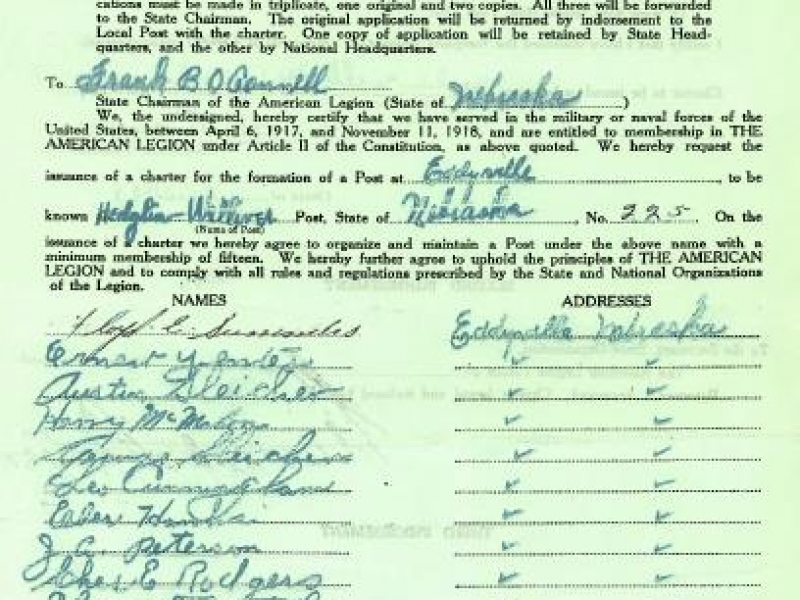 cations must be made in triplicate, one original and two copies. All three will be forwarded
to the State Chairman. The original application will be returned by indorsement to the
Local Post with the charter. One copy of application will be retained by State Head-
quarters, and the other by National Headquarters.
To Frank B O'Connell
State Chairman of the American Legion (State of Nebraska)
We, the undersigned, hereby certify that we have served in the military or naval forces of the
United States, between April 6, 1917, and November 11, 1918, and are entitled to membership in THE
AMERICAN LEGION under Article II of the Constitution, as above quoted. We hereby request the
issuance of a charter for the formation of a Post at Eddyville, to be
known Post, State of Nebraska, No. 225. On the
(Name of Post)
issuance of a charter we hereby agree to organize and maintain a Post under the above name with a
minimum membership of fifteen. We hereby further agree to uphold the principles of THE AMERICAN
LEGION and to comply with all rules and regulations prescribed by the State and National Organizations
of the Legion.
NAMES ADDRESSES
Floyd C. Eddyville Nebraska
Ernest
Austin Bleicher
Harry McMahon
Bleicher
Leo Cunningham
Eber
J. C. Peterson
Chas. E Rodgers